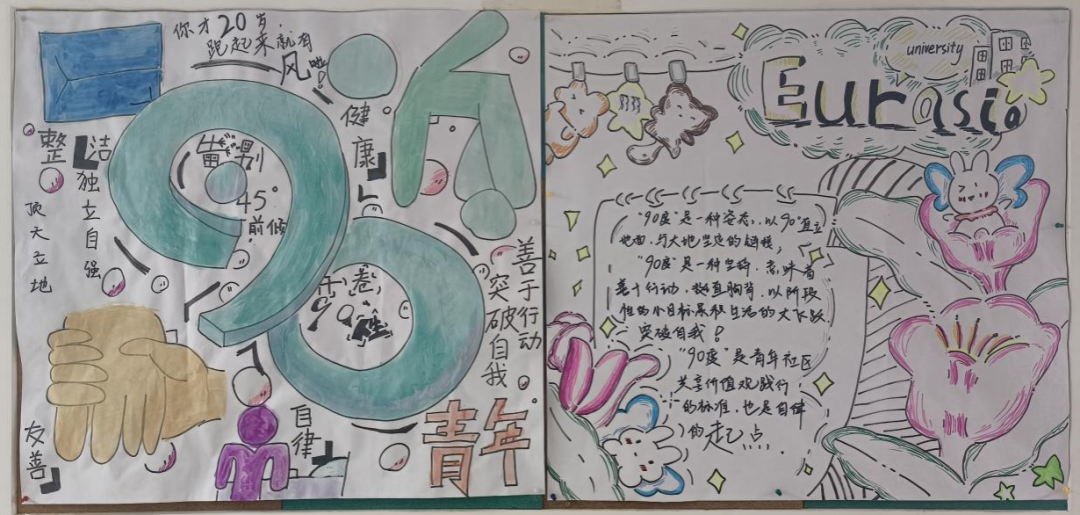 你才20岁,
跑起来就有
风啦!
健康
整洁
独立自强
顶天立地
告别
45°
前倾
90
开卷
90
善于行动
突破自我
自律
友善
青年
university
Eurasia
“90度”是一种姿态,以90°直立
地面,与大地坚定的链接,
“90度”是一种坚持,意味着
善于行动,挺直胸背,以阶段
性的小目标累积生活的大飞跃
突破自我!
“90度”是青年社区
共享价值观践行
的标准,也是自律
的起点.